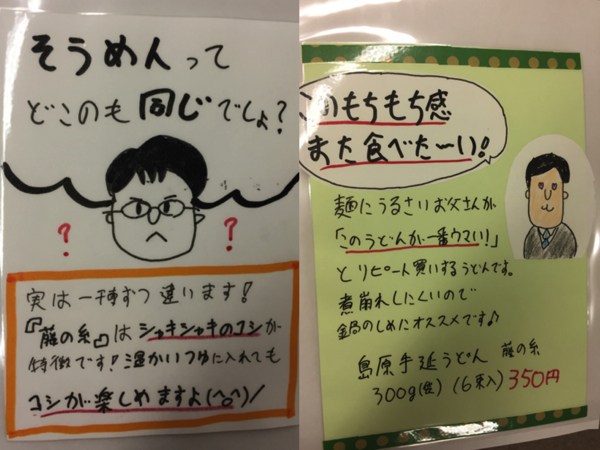 そうめんって
どこのも同じでしょ?
? ?
実は一種ずつ違います!
『藤の糸』はシャキシャキのコシが
特徴です!温かいつゆに入れても
コシが楽しめますよ(^o^)/
のもちもち感
また食べた〜い!
麺にうるさいお父さんが
「このうどんが一番ウマい!」
とリピート買いするうどんです。
煮崩れしにくいので
鍋のしめにオススメです♪
島原手延うどん 藤の糸
300g(6束入) 350円